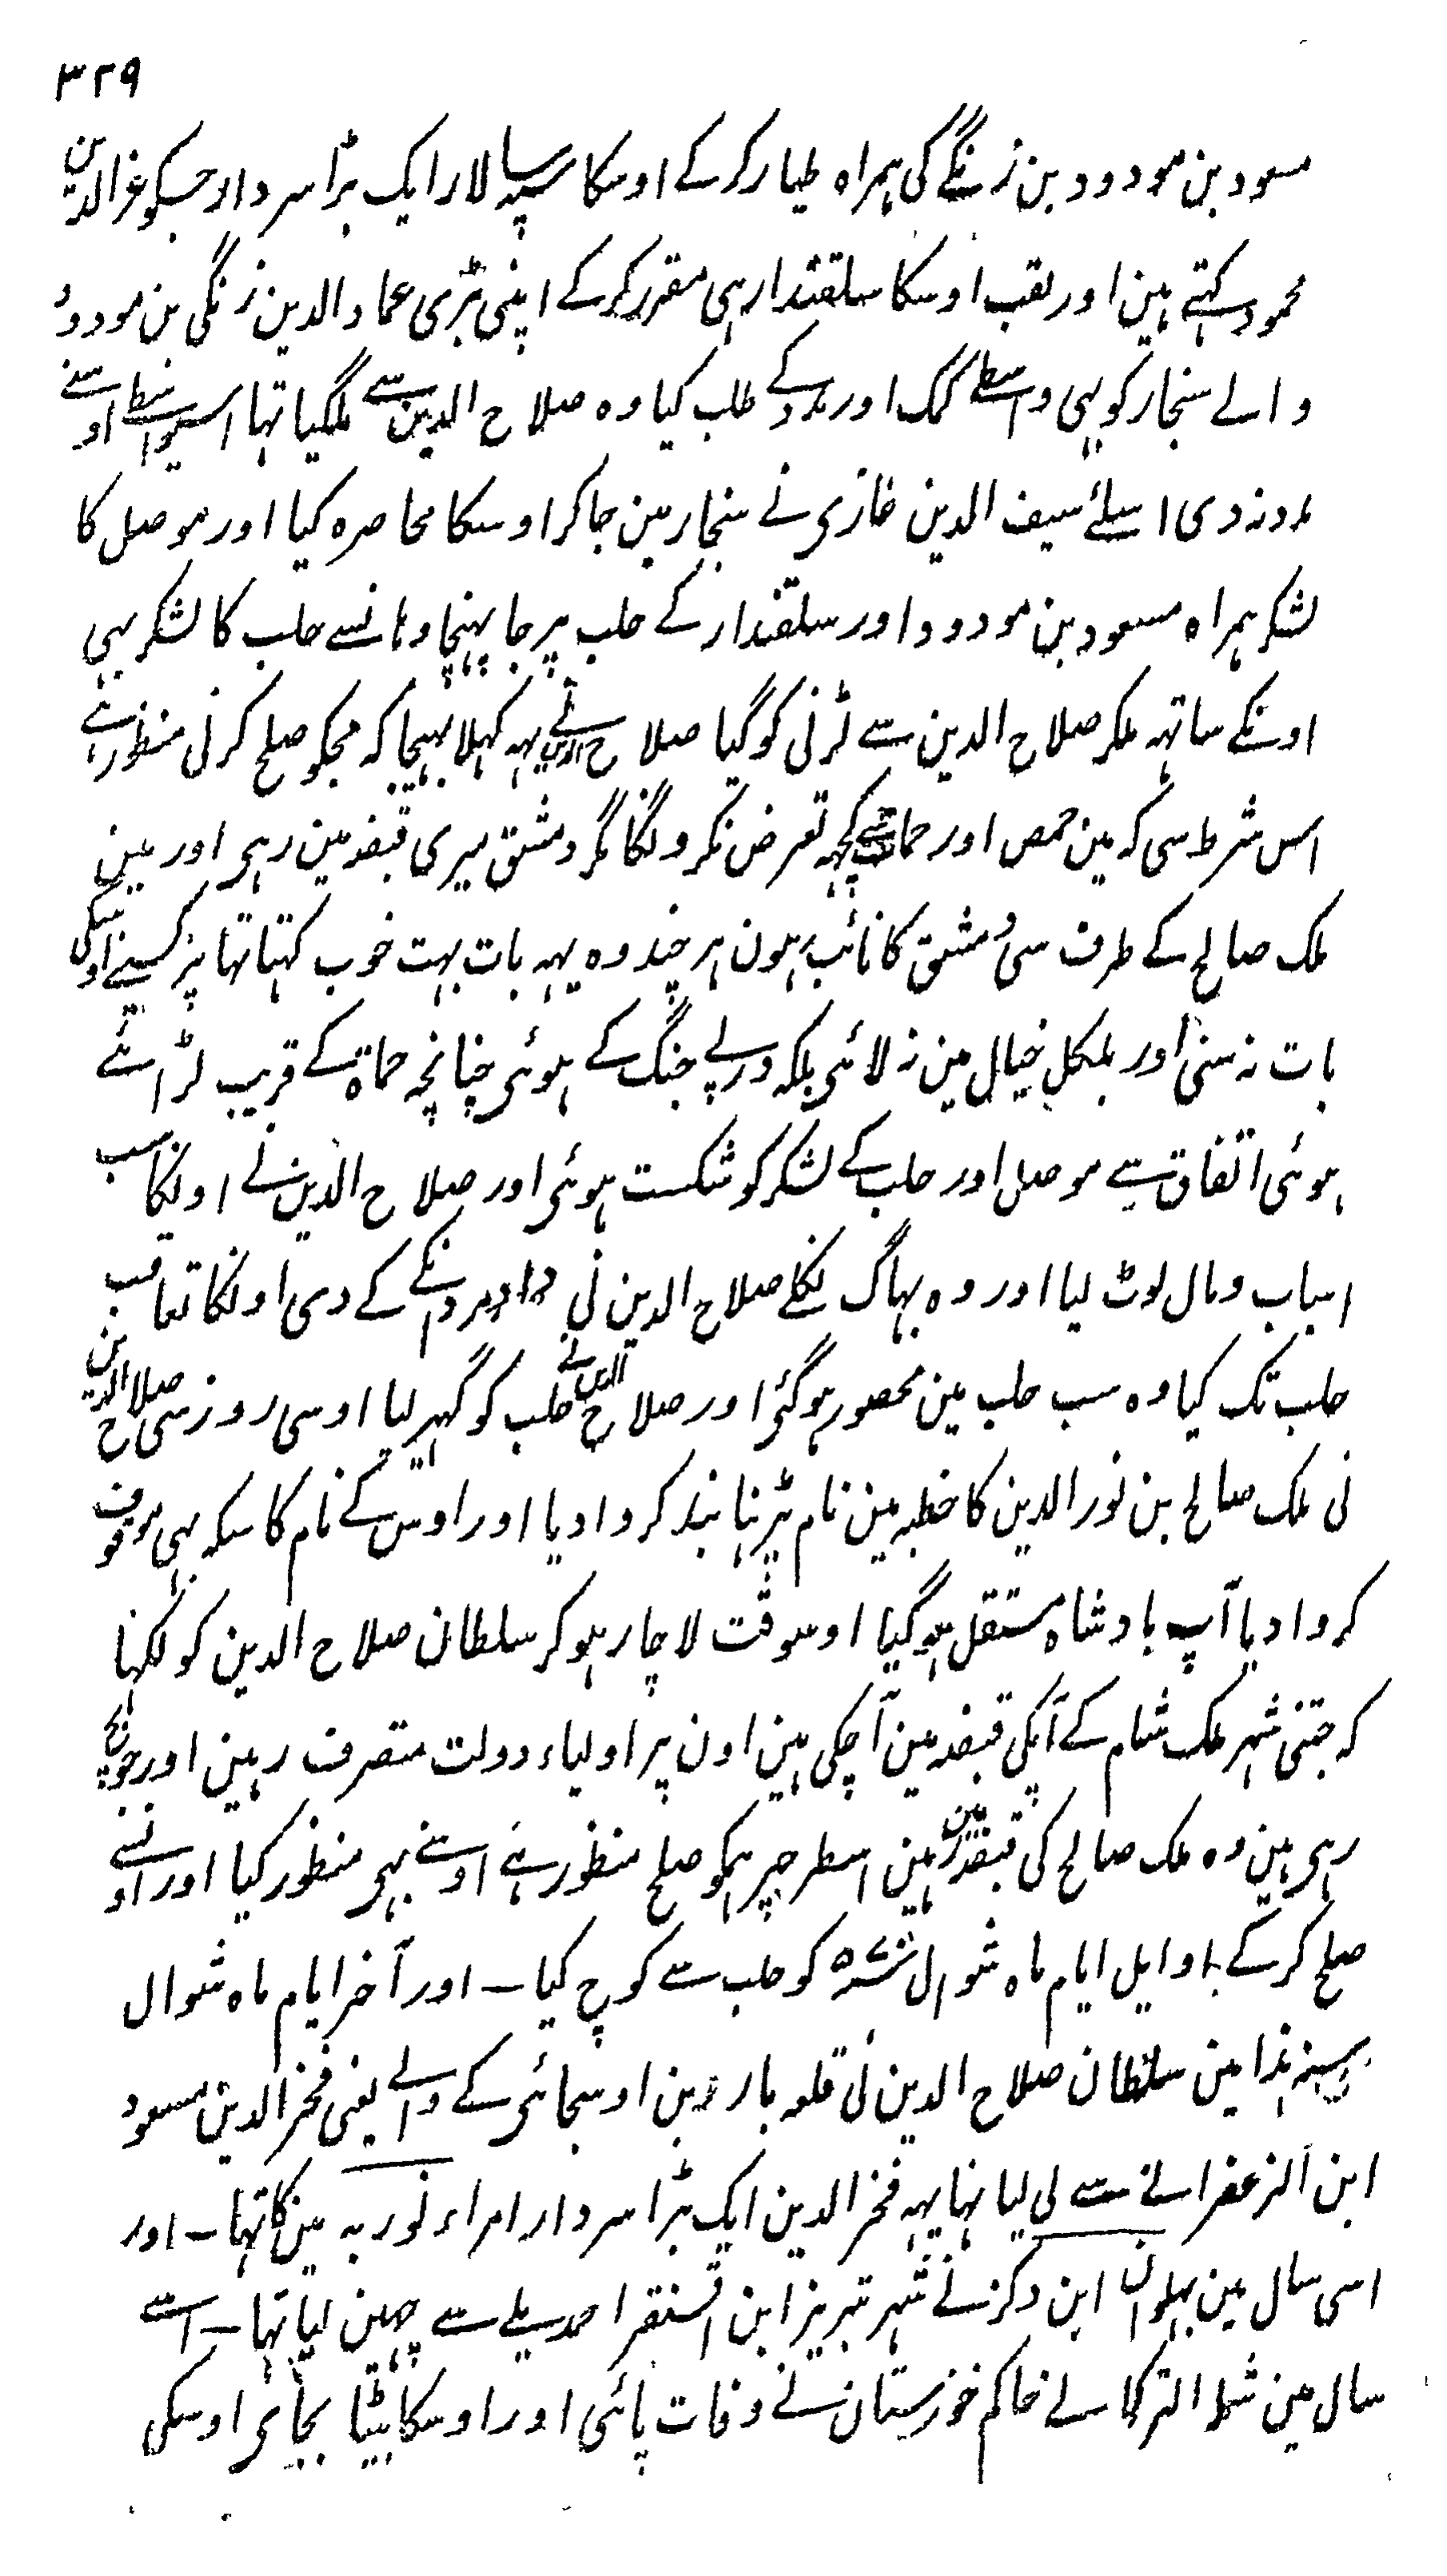 ۳۲۹
مسعود بن مودود بن زنگے کی ہمراہ طیار کر کے اوسکا سپہ سالار ایک بڑا سردار جسکو عزالدین
محمود کہتے ہین اور لقب اوسکا سلقندار ہی مقرر کر کے اپنی بڑی عماد الدین زنگی بن مودود
والے سنجار کو بہی واسطے کمک اور مدد کے طلب کیا وہ صلاح الدین سے ملگیا تہا اسیواسطے اوسنے
مدد نہ دی اسلئے سیف الدین غازی نے سنجار مین جا کر اوسکا محاصرہ کیا اور موصل کا
لشکر ہمراہ مسعود بن مودود اور سلقندار کے حلب پر جا پہنچا وہانسے حلب کا لشکر بہی
اونکے ساتہہ ملکر صلاح الدین سے لڑنی کو گیا صلاح الدین نے یہہ کہلا بہیجا کہ مجکو صلح کرنی منظور ہے
اس شرط سی کہ مین حمص اور حماۃ سے کچہہ تعرض نکرونگا مگر دمشق میری قبضہ مین رہی اور مین
ملک صالح کے طرف سی دمشق کا نائب ہون ہر چند وہ یہہ بات بہت خوب کہتا تہا پر کسینے اوسکی
بات نہ سنی اور بلکل خیال مین نہ لائی بلکہ درپے جنگ کے ہوئی چنانچہ حماۃ کے قریب لڑائے
ہوئی اتفاق سے موصل اور حلب کے لشکر کو شکست ہوئی اور صلاح الدین نے اونکا سب
اسباب ومال لوٹ لیا اور وہ بہاگ نکلے صلاح الدین نی داد مردانگے کے دی اونکا تعاقب
حلب تک کیا وہ سب حلب مین محصور ہو گئی اور صلاح الدین نے حلب کو گہیر لیا اوسی روز سی صلاح الدین
نی ملک صالح بن نور الدین کا خطبہ مین نام پڑہنا بند کروا دیا اور اوس کے نام کا سکہ بہی موقوف
کروا دیا آپ بادشاہ مستقل ہو گیا اوسوقت لاچار ہو کر سلطان صلاح الدین کو لکہا
کہ جتنی شہر ملک شام کے آپکی قبضہ مین آچکی ہین اون پر اولیاء دولت متصرف رہین اور جو بچ
رہی ہین وہ ملک صالح کی قبضہ مین رہین اسطرحپر ہمکو صلح منظور ہے اوسنے بہی منظور کیا اور اونسے
صلح کر کے اوایل ایام ماہ شوال سنہ ۵۷۰ کو حلب سے کوچ کیا ۔ اور آخر ایام ماہ شوال
سنہ ہذا مین سلطان صلاح الدین نی قلعہ بارزین اوسجائی کے والے یعنی فخر الدین مسعود
ابن الزعفرانے سے لی لیا تہا یہہ فخر الدین ایک بڑا سردار امراء نوریہ مین کا تہا ۔ اور
اسی سال مین بہلوان ابن دکز نے شہر تبریز ابن اقسنقر احمدیلے سے چہین لیا تہا ۔ اسے
سال مین شملہ الترکمانے حاکم خوزستان نے وفات پائی اور اوسکا بیٹا بجای اوسکی